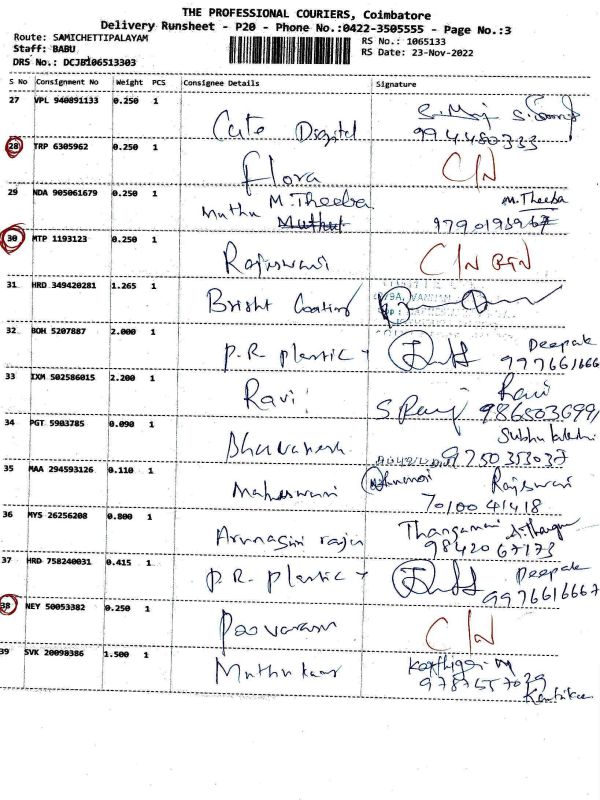 THE PROFESSIONAL COURIERS, Coimbatore
Delivery Runsheet - P20 - Phone No.:0422-3505555 - Page No.:3
Route: SAMICHETTIPALAYAM
RS No.: 1065133
Staff: BABU
RS Date: 23-Nov-2022
DRS No.: DCJB106513303
S No Consignment No Weight PCS Consignee Details Signature
27 VPL 940891133 0.250 1
Cute Digital 994480333
28 TRP 6305962 0.250 1
Flora C/N
29 NDA 905061679 0.250 1
M. Theeba M.Theeba
Muthu Muthu
30 MTP 1193123 0.250 1
Rajiswari C/N
31 HRD 349420281 1.265 1
Bright Coating
32 BOH 5207887 2.000 1
P.R. plastic Deepak
997661666
33 IXM 502586015 2.200 1
Ravi Ravi
34 PGT 5903785 0.090 1
9750353037
35 MAA 294593126 0.110 1
Maheswari Rajiswari
7010041418
36 MYS 26256208 0.800 1
Thangamani
Arunagiri raju 9842067173
37 HRD 758240031 0.415 1
P.R. plastic Deepak
9976616667
38 NEY 50053382 0.250 1
Poovarasan C/N
39 SVK 20098386 1.500 1